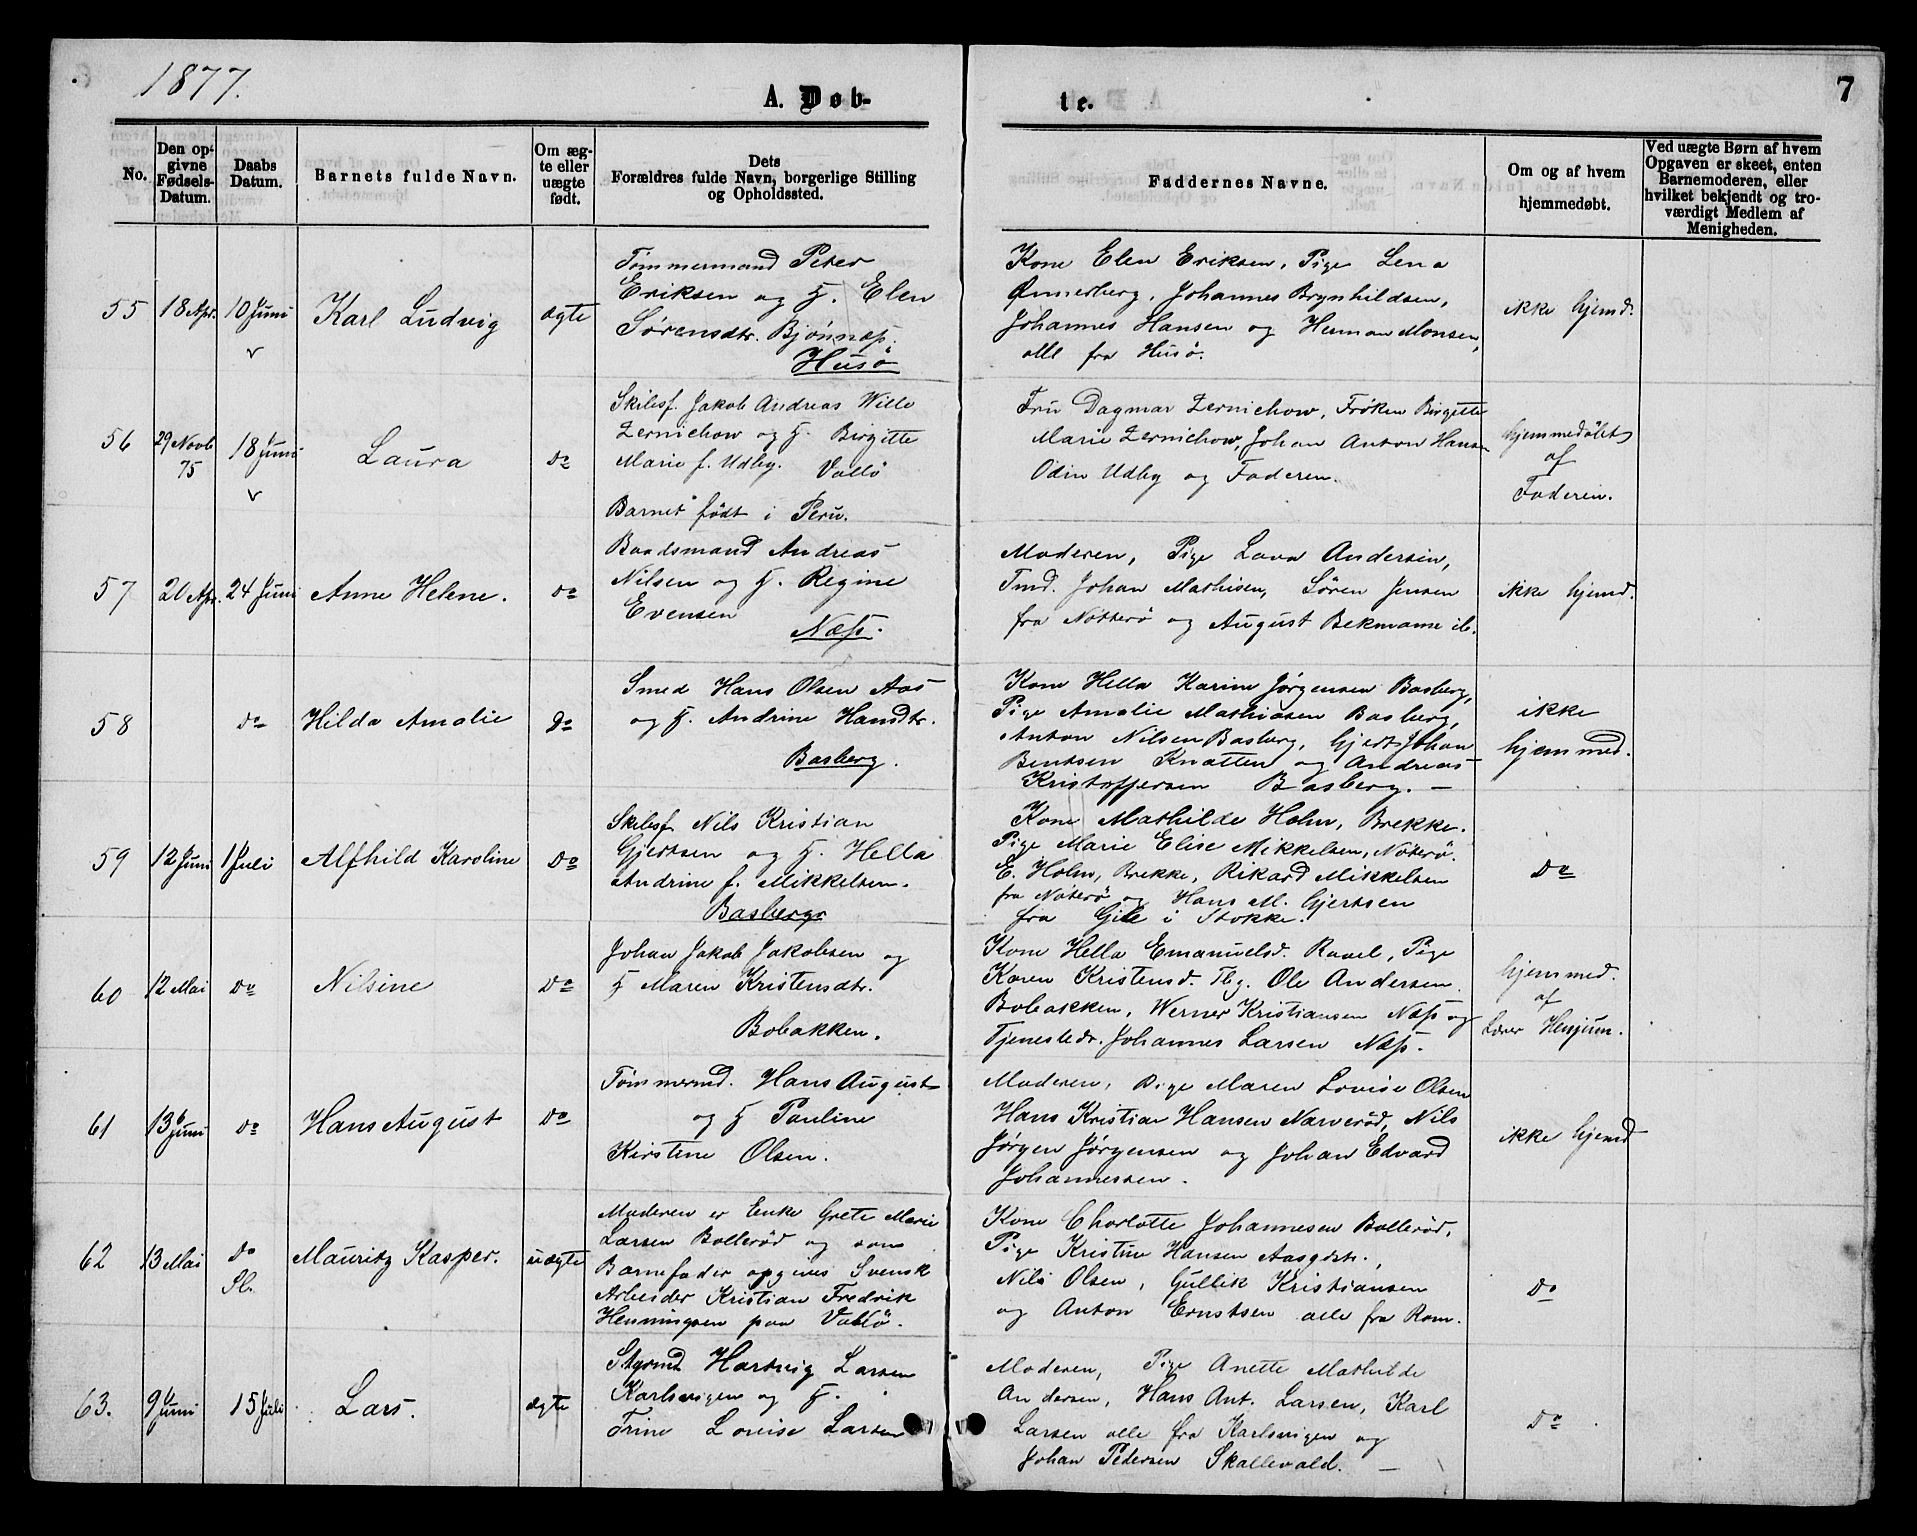 1877.
A. Døb-
te.
7
No.
Den op-
givne
Fødsels-
Datum.
Daabs
Datum.
Barnets fulde Navn.
Om æg-
te eller
uægte
født.
Dets
Forældres fulde Navn, borgerlige Stilling
og Opholdssted.
Faddernes Navne.
Om og af hvem
hjemmedøbt.
Ved uægte Børn af hvem
Opgaven er skeet, enten
Barnemoderen, eller
hvilket bekjendt og tro-
værdigt Medlem af
Menigheden.
55
18 Apr.
10 Juni
Karl Ludvig
ægte
Tømmermand Peter
Eriksen og H. Elen
Sørensdtr. Bjønnes
Husö
Kone Elen Eriksen, Pige Lena
Johannes Brynhildsen,
Johannes Hansen og Herman Monsen,
alle fra Husø.
ikke hjemd.
56
29 Novb
75
18 Juni
Laura
do
Skibsf. Jakob Andreas Wille
Zernichow og H. Birgitte
Marie f. Udby. Vallö
Barnet født i Peru.
Fru Dagmar Zernichow, Frøken Birgitte
Marie Zernichow, Johan Anton Hansen
Odin Udby og Faderen.
hjemmedöbt
af
Faderen.
57
20 Apr.
24 Juni
Anne Helene.
do
Baadsmand Andreas
Nilsen og H. Regine
Evensen
Næss.
Moderen, Pige Lava Andersen,
Tmd. Johan Mathisen, Søren Jensen
fra Nøtterö og August Bekmann ib.
ikke hjemd.
58
do
Hilda Amalie
do
Smed Hans Olsen Aas
og H. Andrine Hansdtr.
Basberg.
Kone Hella Karine Jørgensen Basberg,
Pige Amalie Mathiasen Basberg,
Anton Nilsen Basberg, Gjert Johan
Bentsen Knatten og Andreas
Kristoffersen Basberg. —
ikke
hjemmed.
59
12 Juni
1 Juli
Alfhild Karoline
Do
Skibsf Nils Kristian
Gjertsen og H. Hella
Andrine f. Mikkelsen.
Basberg
Kone Mathilde Holm, Brekke.
Pige Marie Elise Mikkelsen, Nøterö.
E. Holm, Brekke, Rikard Mikkelsen
fra Nøterö og Hans M. Gjertsen
fra Gile i Stokke.
Do
60
12 Mai
Do
Nilsine
Do
Johan Jakob Jakobsen og
H Maren Kristensdtr.
Bobakken.
Kone Hella Emanuelsd. Ravel, Pige
Karen Kristensd. Tbg. Ole Andersen
Bobakken, Werner Kristiansen Næss og
Tjenestedr. Johannes Larsen Næss.
hjemmed.
af
Lærer Henjum.
61
13 Juni
do
Hans August
Do
Tømmermd. Hans August
og H Pauline
Kirstine Olsen.
Moderen, Pige Maren Lovise Olsen
Hans Kristian Hansen Narverød, Nils
Jørgen Jørgensen og Johan Edvard
Johannessen.
ikke hjemd
62
13 Mai
Do
Sl.
Mauritz Kasper.
uægte
Moderen er Enke Grete Marie
Larsen Bollerød og som
Barnefader opgives Svensk
Arbeider Kristian Fredrik
Henningsen paa Vallö.
Kone Charlotte Johannesen Bollerød,
Pige Kristine Hansen Aasgdstr.,
Nils Olsen, Gullik Kristiansen
og Anton Ernstsen alle fra Rom.
Do
63.
9 Juni
15 Juli
Lars.
ægte
Styrmd Hartvig Larsen
Karlsvigen og H.
Trine Lovise Larsen
Moderen, Pige Anette Mathilde
Andersen, Hans Ant. Larsen, Karl
Larsen alle fra Karlsvigen og
Johan Pedersen Skallevald. —
Do